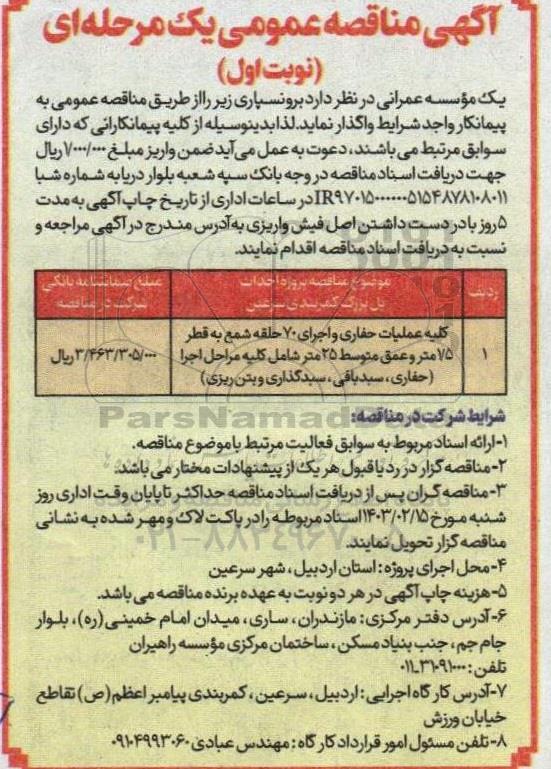 آگهی مناقصه عمومی یک مرحله‌ای
(نوبت اول)
یک مؤسسه عمرانی در نظر دارد برونسپاری زیر را از طریق مناقصه عمومی به
پیمانکار واجد شرایط واگذار نماید. لذا بدینوسیله از کلیه پیمانکارانی که دارای
سوابق مرتبط می باشند، دعوت به عمل می آید ضمن واریز مبلغ ۱/۰۰۰/۰۰۰ ریال
جهت دریافت اسناد مناقصه در وجه بانک سپه شعبه بلوار دریا به شماره شبا
IR۹۷۰۱۵۰۰۰۰۰۰۰۵۱۵۴۸۷۸۱۰۸۰۱۱ در ساعات اداری از تاریخ چاپ آگهی به مدت
۵ روز با در دست داشتن اصل فیش واریزی به آدرس مندرج در آگهی مراجعه و
نسبت به دریافت اسناد مناقصه اقدام نمایند.
ردیف
موضوع مناقصه پروژه احداث
پل بزرگ کمربندی سرعین
مبلغ ضمانتنامه بانکی
شرکت در مناقصه
۱
کلیه عملیات حفاری و اجرای ۷۰ حلقه شمع به قطر
۱/۵ متر و عمق متوسط ۲۵ متر شامل کلیه مراحل اجرا
(حفاری، سبدبافی، سبدگذاری و بتن ریزی)
۳/۴۶۳/۳۰۵/۰۰۰ ریال
شرایط شرکت در مناقصه:
۱-ارائه اسناد مربوط به سوابق فعالیت مرتبط با موضوع مناقصه.
۲-مناقصه گزار در رد یا قبول هر یک از پیشنهادات مختار می باشد.
۳-مناقصه گران پس از دریافت اسناد مناقصه حداکثر تا پایان وقت اداری روز
شنبه مورخ ۱۴۰۳/۰۲/۱۵ اسناد مربوطه را در پاکت لاک و مهر شده به نشانی
مناقصه گزار تحویل نمایند.
۴-محل اجرای پروژه: استان اردبیل، شهر سرعین
۵-هزینه چاپ آگهی در هر دو نوبت به عهده برنده مناقصه می باشد.
۶-آدرس دفتر مرکزی: مازندران، ساری، میدان امام خمینی(ره)، بلوار
جام جم، جنب بنیاد مسکن، ساختمان مرکزی مؤسسه راهیران
تلفن: ۳۱۰۹۱۰۰۰-۰۱۱
۷-آدرس کارگاه اجرایی: اردبیل، سرعین، کمربندی پیامبر اعظم(ص) تقاطع
خیابان ورزش
۸-تلفن مسئول امور قرارداد کارگاه: مهندس عبادی ۰۹۱۰۴۹۹۳۰۶۰
ParsNamad
۰۲۱-۸۸۳۴۹۶۷۰